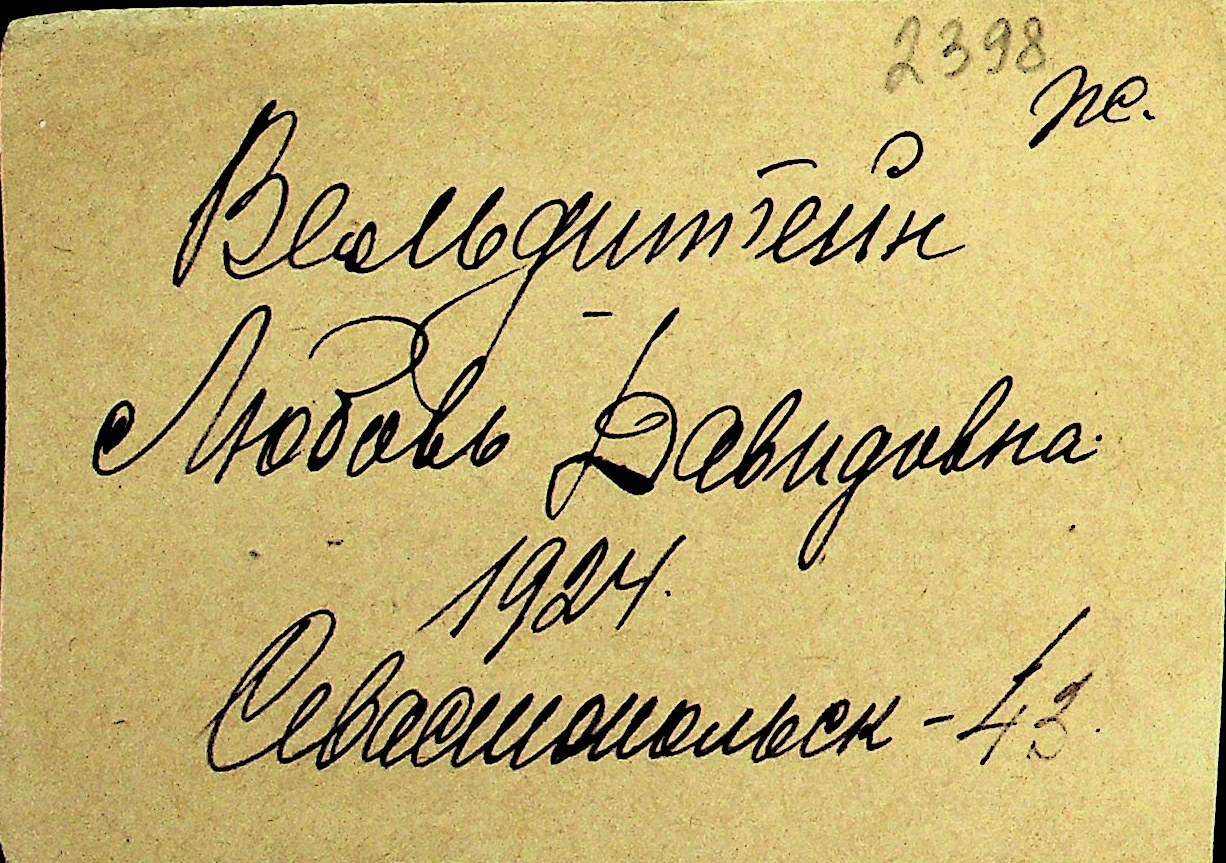 2398
ж.
Вельдштейн
Любовь Давидовна
1924.
Севастопольск - 43.